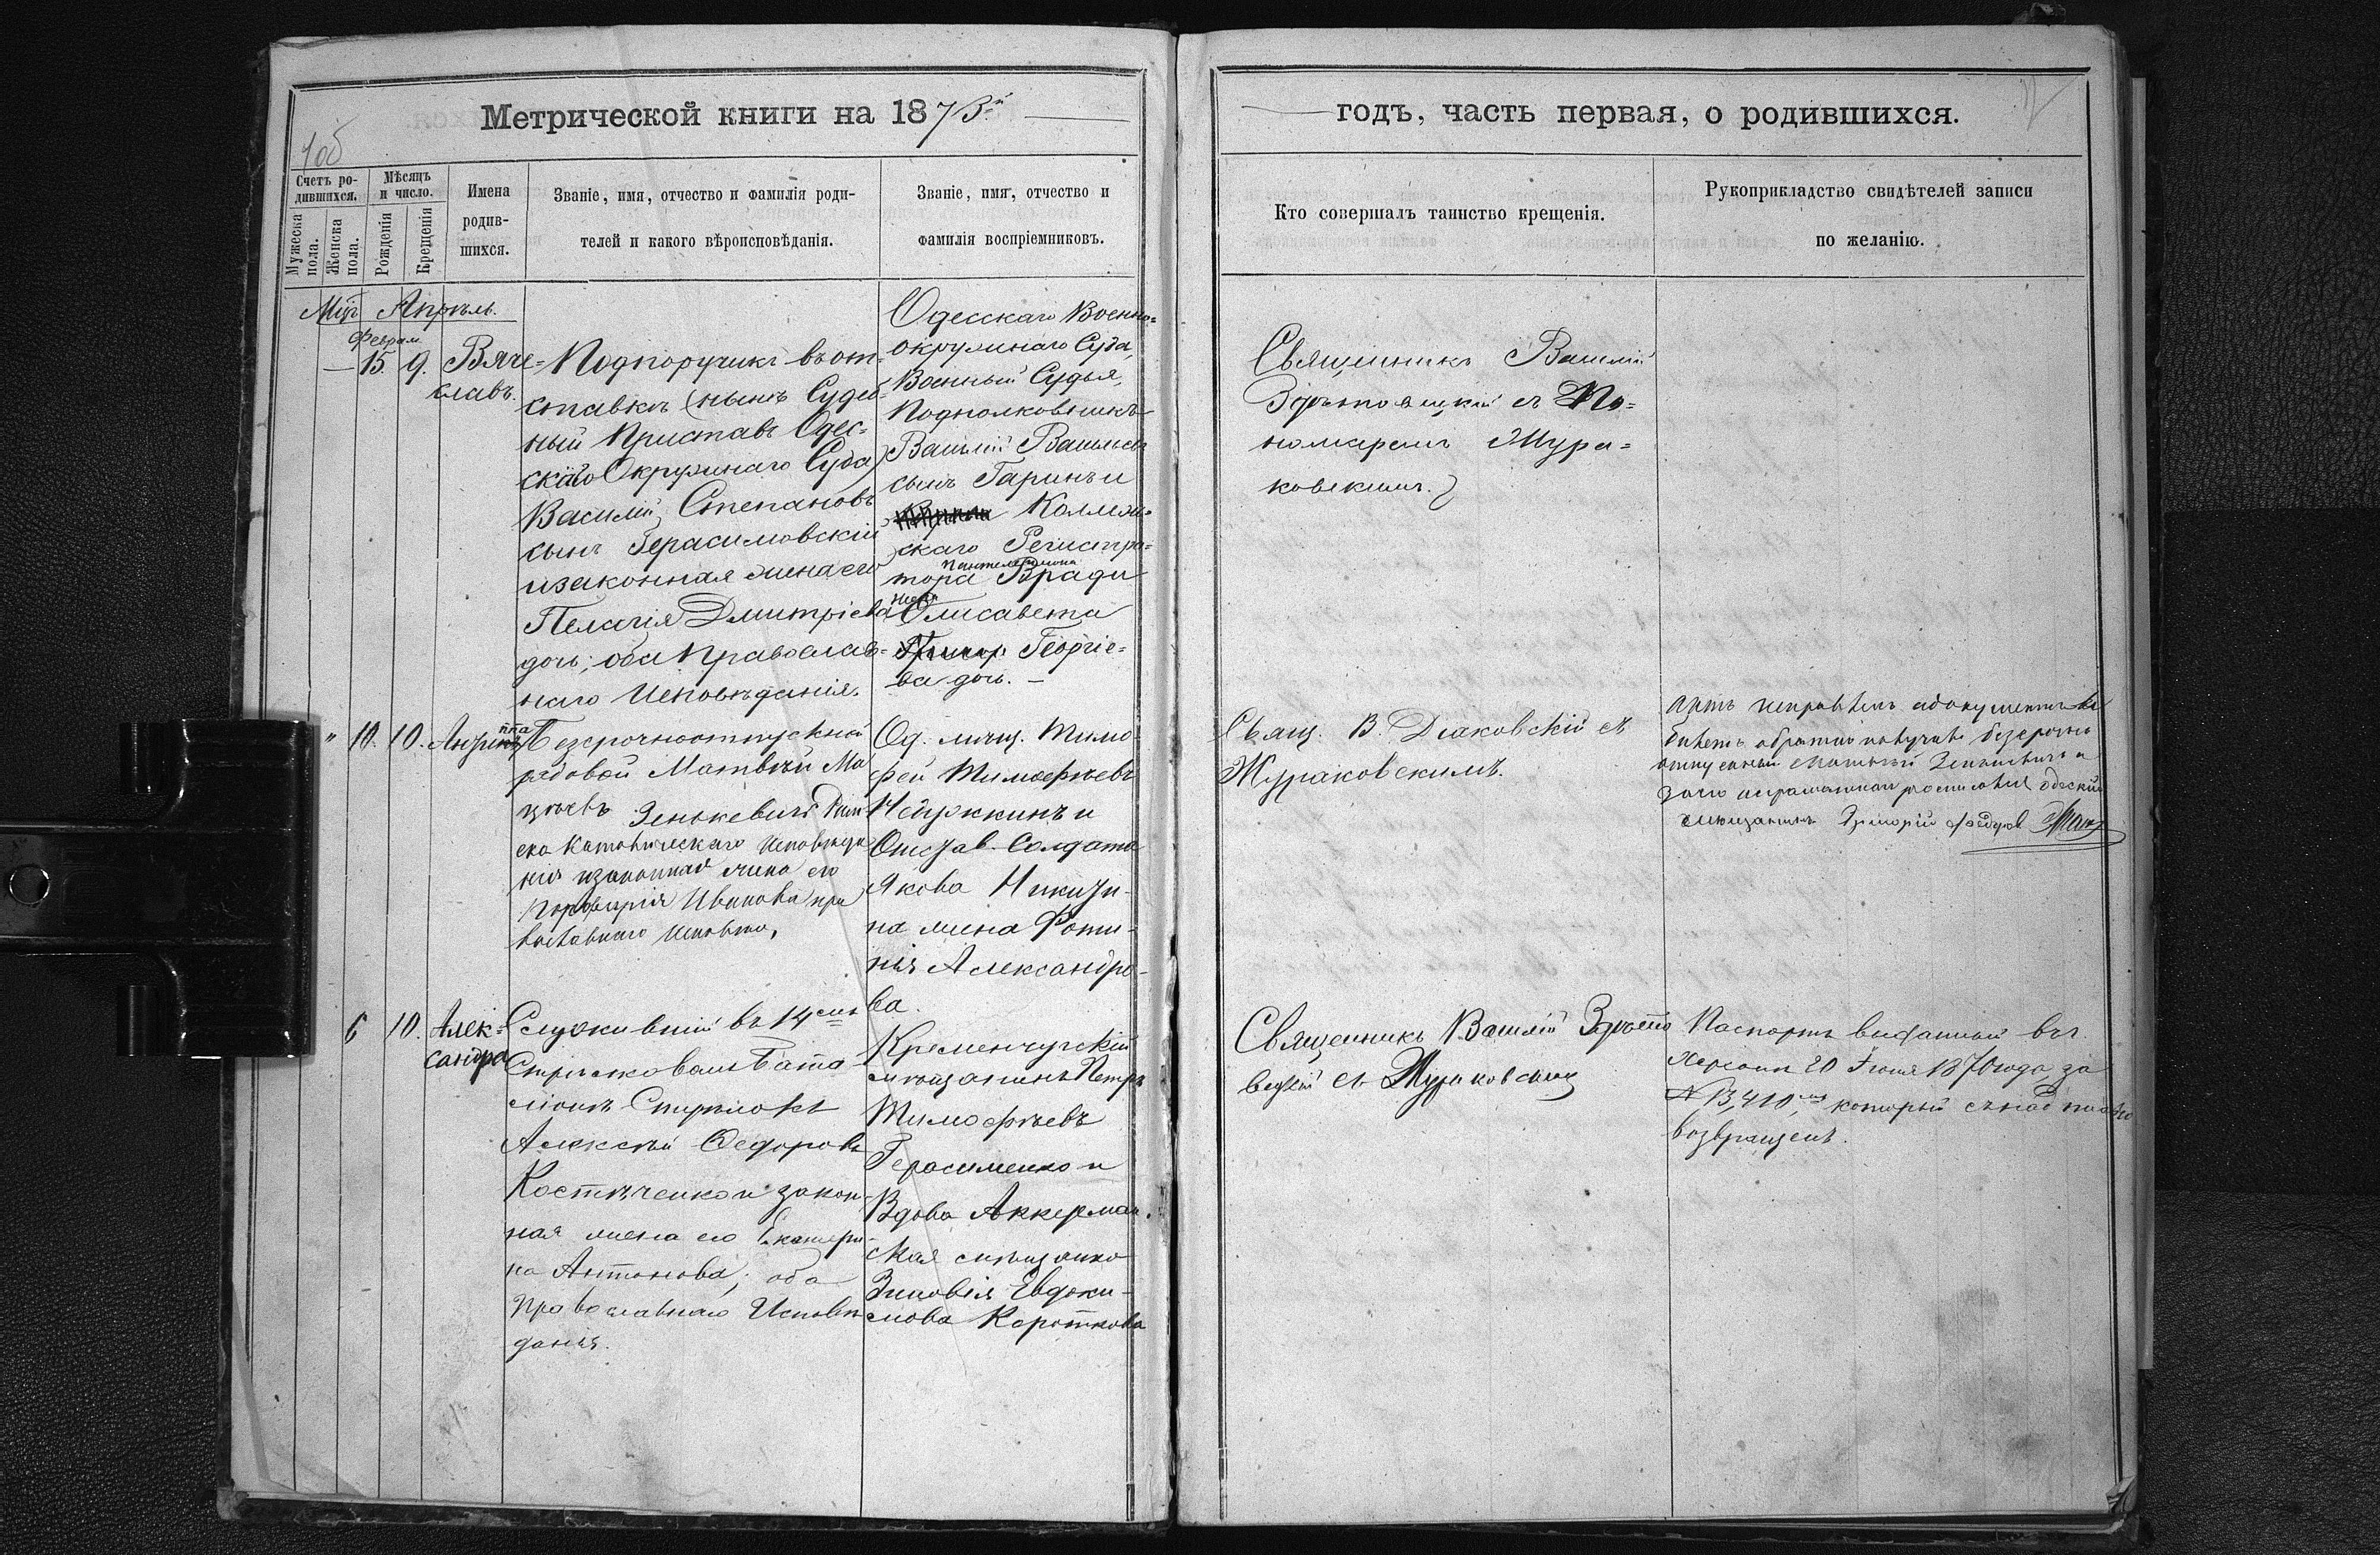 Метрической книги на 1873й
годъ, часть первая, о родившихся.
Счетъ ро-
дившихся.
Мужеска
пола.
Женска
пола.
Мѣсяцъ
и число.
Рожденія
Крещенія
Имена
родив-
шихся.
Званіе, имя, отчество и фамилія роди-
телей и какого вѣроисповѣданія.
Званіе, имя, отчество и
фамилія воспріемниковъ.
Кто совершалъ таинство крещенія.
Рукоприкладство свидѣтелей записи
по желанію.
Мцъ Апрѣль.
Феврал
— 15. 9. Вяче=
славъ.
Подпоручикъ въ от-
ставкѣ (нынѣ Судеб-
ный Приставъ Одес-
скаго Окружнаго Суда)
Василій Степановъ
сынъ Герасимовскій
и законная жена его
Пелагія Дмитріева
дочь; оба Православ-
наго Исповѣданія.
Одесскаго Военно=
окружнаго Суда,
Военный Судья,
Подполковникъ
Василій Васильевъ
сынъ Гаринъ и
Коллеж-
скаго Регистра-
тора Пантелеймона Вради
жена Елисавета
Георгіе-
ва дочь. —
Священникъ Василій
съ По=
номаремъ Жура=
ковскимъ.
" 10. 10.
Безсрочноотпускной
рядовой Матвѣй Ма
Зенькевичъ Рим
ско Католическаго Исповѣда
нія и законная жена его
Порфирія Иванова пра
вославнаго Исповѣд,
Од. мѣщ. Тимо-
фей Тимофеевъ
и
Отстав. Солдата
Якова
на жена Фоти-
нія Александро-
ва.
Свящ. В. Діаковскій съ
Жураковскимъ.
обратно получилъ безсрочно
отпускной Матвѣй Зенькевичъ а
за него неграмотнаго росписался одескій
мещанинъ Григорій Федоров
6 10. Алек=
сандра
Служившій въ 14мъ
Стрѣлковомъ Бата-
ліонѣ Стрѣлокъ
Алексѣй Федоровъ
Костюченко и закон-
ная жена его Екатери-
на Антонова; оба
Православнаго Исповѣ-
данія.
Кременчугскій
мѣщанинъ Петръ
Тимофѣевъ
Герасименко и
Вдова Аккерман-
ская мѣщанка
Зиновія Евдоки-
мова Короткова
Священникъ Василій
съ Жураковским
Паспортъ выданный въ г.
Херсонѣ 20 Іюня 1870 года за
№ 13,410мъ, который
возвращенъ.